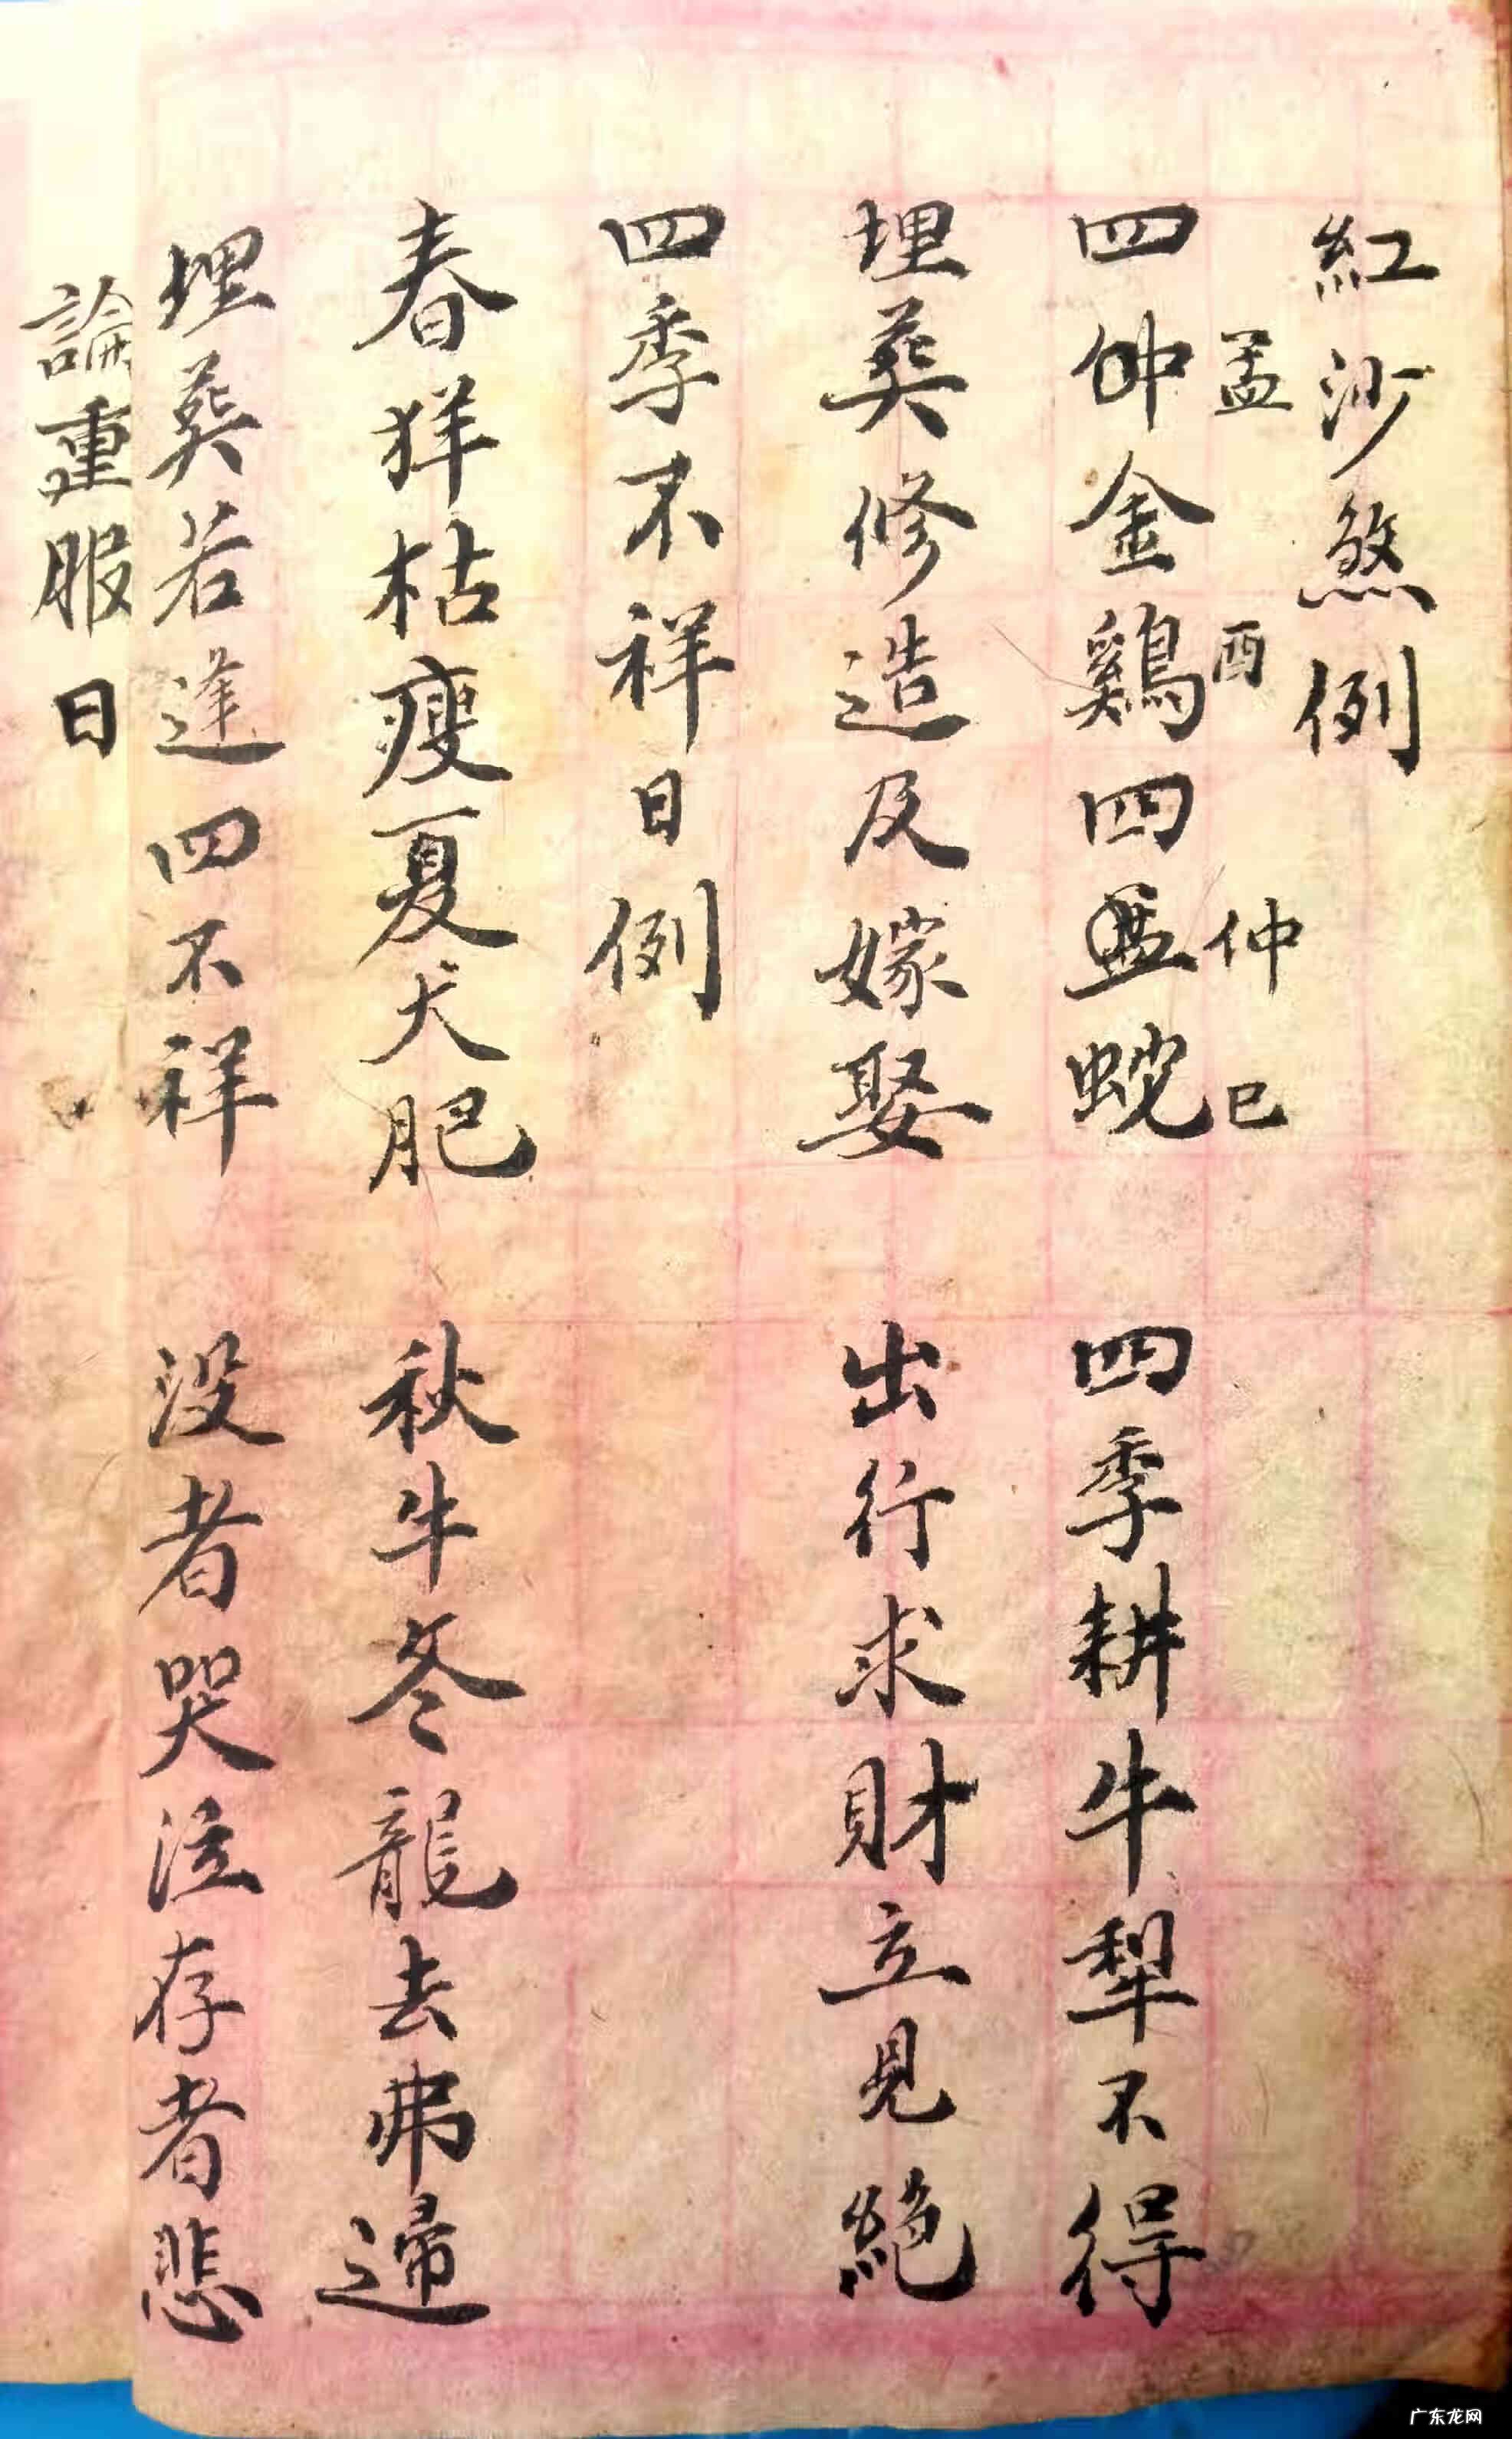 紅沙煞例
孟 酉 仲 巳
四仲金鷄四孟蛇 四季耕牛犂不得
埋葬修造及嫁娶 出行求財立見絶
四季不祥日例
春羊枯瘦夏犬肥 秋牛冬龍去弗歸
埋葬若逢四不祥 没者哭泣存者悲
論重服日
广东龙网